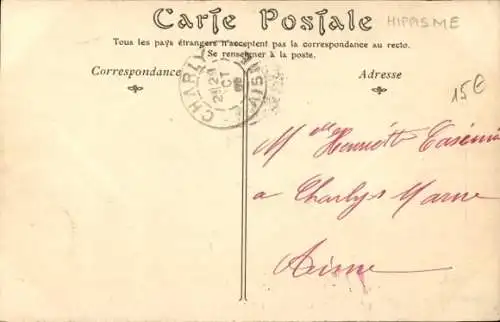 Carte Postale
HIPPISME
Tous les pays étrangers n'acceptent pas la correspondance au recto.
Se renseigner à la poste.
Correspondance
Adresse
CHARLY
AISNE
15€
Mlle Henriette
a Charly s Marne
Aisne